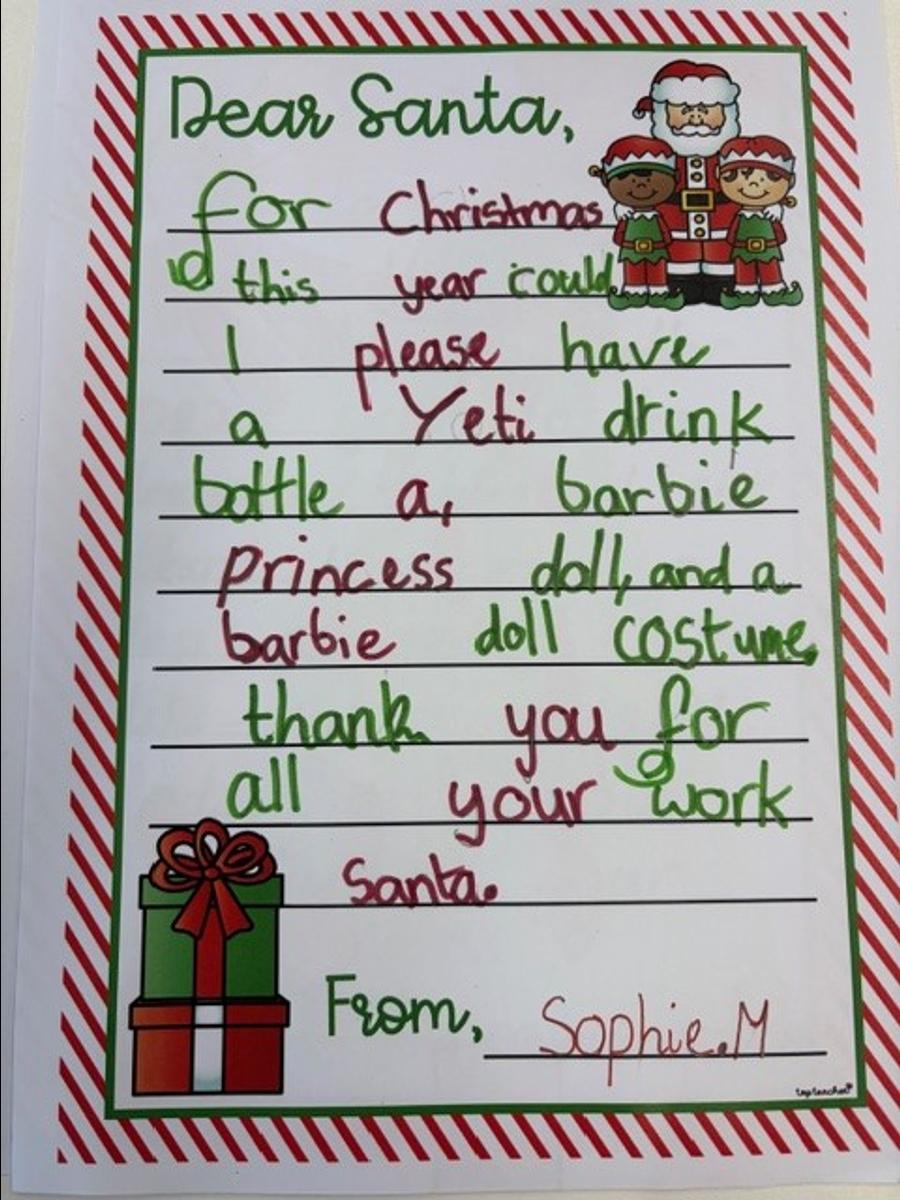 Dear Santa,
for Christmas
this year could
I please have
a Yeti drink
bottle a, barbie
princess doll, and a
barbie doll costume,
thank you for
all your work
Santa.
From, Sophie.M
topteacher